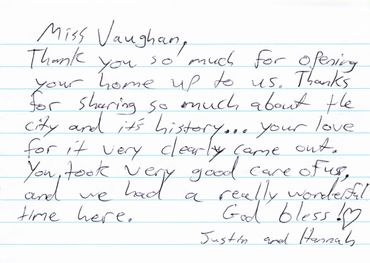 Miss Vaughan,
Thank you so much for opening
your home up to us. Thanks
for sharing so much about the
city and it's history... your love
for it very clearly came out.
You took very good care of us,
and we had a really wonderful
time here. God bless! ♡
Justin and Hannah